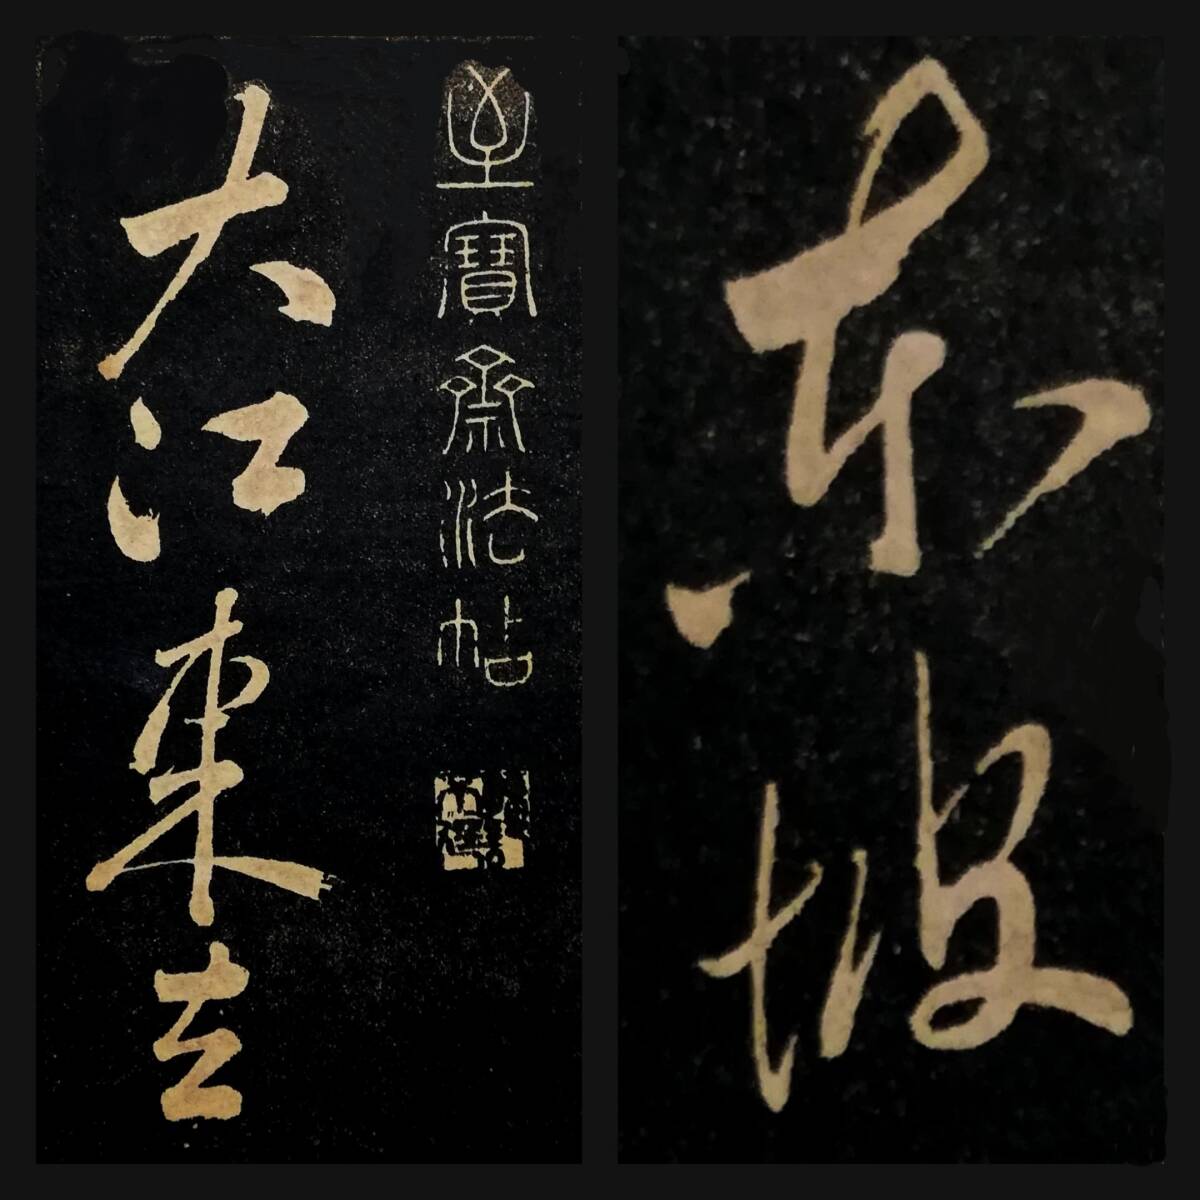 至寶齋法帖
大江東去
東坡